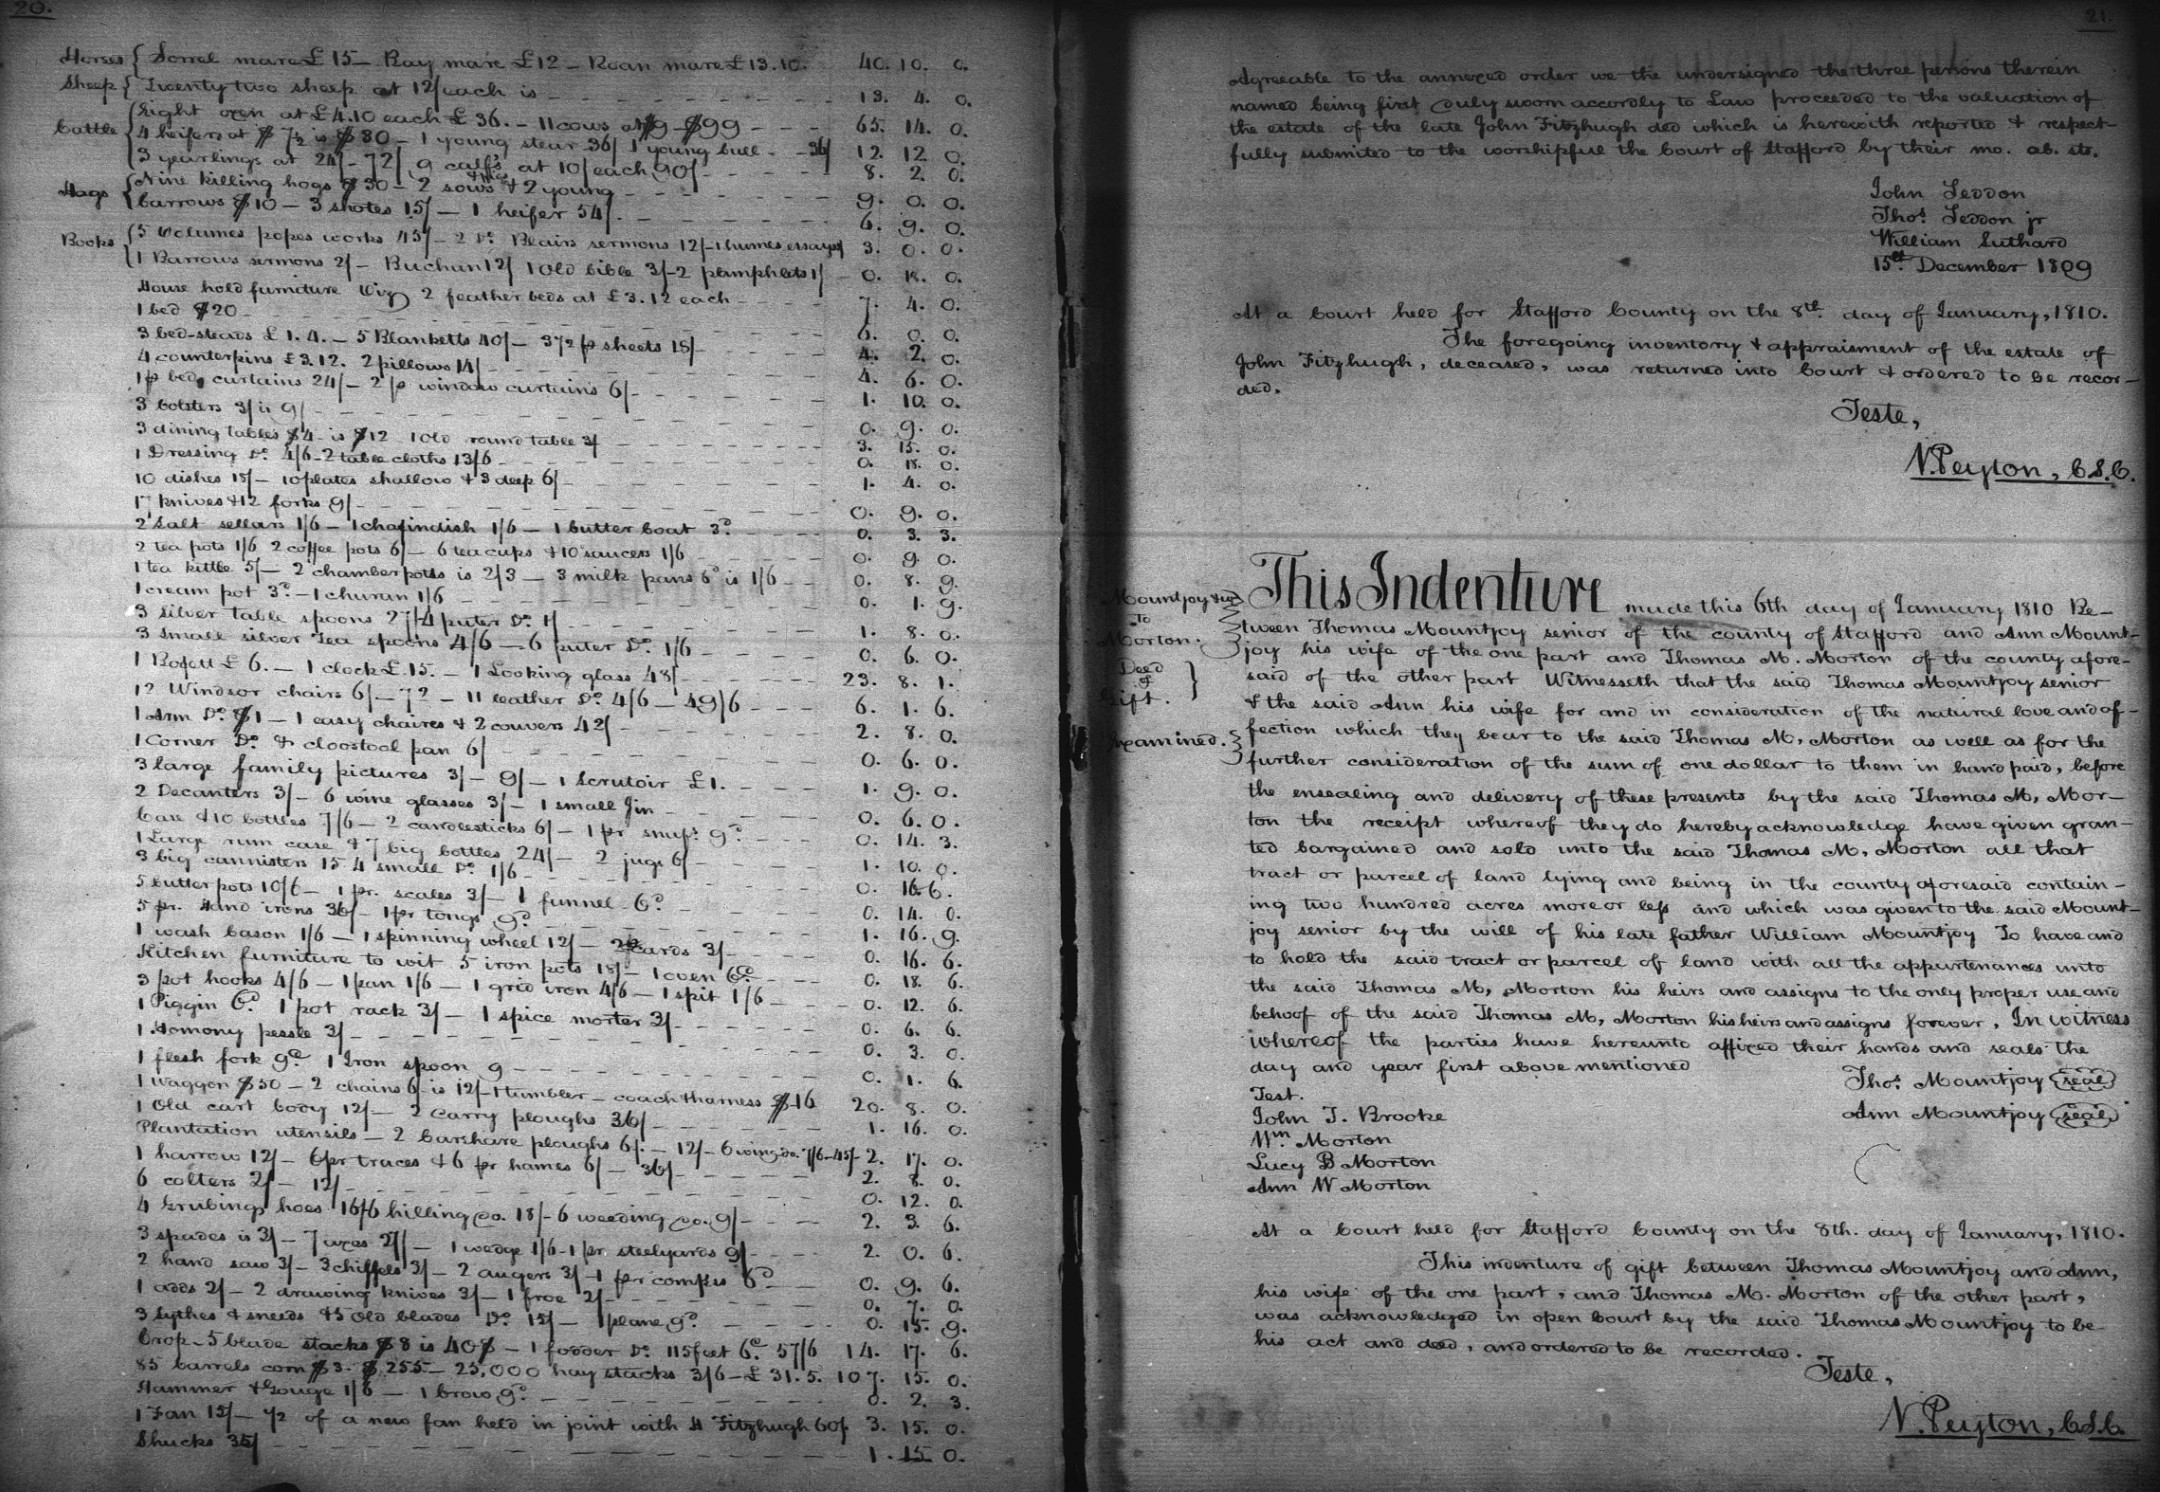 20.
Horses { Sorrel mare £ 15 – Bay mare £ 12 – Roan mare £ 13.10. 40. 10. 0.
Sheep { Twenty two sheep at 12/ each is 13. 4. 0.
Cattle { Eight oxen at £ 4.10 each £ 36. – 11 cows at $9 – $99 65. 14. 0.
4 heifers at $ 7½ is $30 – 1 young stear 36/ 1 young bull 36/ 12. 12 0.
3 yearlings at 24/ – 72/ 9 calf's at 10/ each 90/ 8. 2. 0.
Hogs { Nine killing hogs $30 – 2 sows & 2 young 9. 0. 0.
barrows $10 – 3 shotes 15/ – 1 heifer 54/. 6. 9. 0.
Books { 5 Volumes popes works 45/ – 2 Do. Blairs sermons 12/ – 1 humes essays 3. 0. 0.
1 Barrows sermons 2/ – Buchan 12/ 1 Old bible 3/ – 2 pamphlets 1/ 0. 18. 0.
House hold furniture Viz 2 feather beds at £ 3.12 each 7. 4. 0.
1 bed $20 6. 0. 0.
3 bed-steads £ 1. 4. – 5 Blanketts 40/ – 3½ p sheets 18/ 4. 2. 0.
4 counterpins £ 3.12. 2 pillows 14/ 4. 6. 0.
1 p bed curtains 24/ – 2 p window curtains 6/ 1. 10. 0.
3 bolsters 3/ is 9/ 0. 9. 0.
3 dining tables $4 – is $12 1 Old round table 3/ 3. 15. 0.
1 Dressing Do. 4/6 – 2 table cloths 13/6 0. 18. 0.
10 dishes 18/ – 10 plates shallow & 3 deep 6/ 1. 4. 0.
17 knives & 12 forks 9/ 0. 9. 0.
2 Salt sellars 1/6 – 1 chafindish 1/6 – 1 butter boat 3d 0. 3. 3.
2 tea pots 1/6 2 coffee pots 6/ – 6 teacups & 10 saucers 1/6 0. 9. 0.
1 tea kittle 5/ – 2 chamber potts is 2/3 – 3 milk pans 6d is 1/6 0. 8. 9.
1 cream pot 3d – 1 churan 1/6 0. 1. 9.
3 silver table spoons 27/ 4 puter Do. 1/ 1. 8. 0.
3 Small silver Tea spoons 4/6 – 6 puter Do. 1/6 0. 6. 0.
1 Bofett £ 6. – 1 clock £ 15. – 1 Looking glass 48/ 23. 8. 1.
12 Windsor chairs 6/ – 72 – 11 leather Do. 4/6 – 49/6 6. 1. 6.
1 Arm Do. $1 – 1 easy chaires & 2 couvers 42/ 2. 8. 0.
1 Corner Do. & cloostool pan 6/ 0. 6. 0.
3 large family pictures 3/ – 9/ – 1 Scrutoir £ 1. 1. 9. 0.
2 Decanters 3/ – 6 wine glasses 3/ – 1 small Jin 0. 6. 0.
Case & 10 bottles 7/6 – 2 candlesticks 6/ – 1 pr snufs 9d 0. 14. 3.
1 Large rum case & 7 big bottles 24/ – 2 jugs 6/ 1. 10. 0.
3 big cannisters 15 4 small Do. 1/6 0. 16. 6.
5 butter pots 10/6 – 1 pr. scales 3/ – 1 funnel 6d 0. 14. 0.
5 pr. Hand irons 36/ – 1 pr tongs 9d 1. 16. 9.
1 wash bason 1/6 – 1 spinning wheel 12/ – 2 cards 3/ 0. 16. 6.
Kitchen furniture to wit 5 iron pots 18/ – 1 oven 6d 0. 18. 6.
3 pot hooks 4/6 – 1 pan 1/6 – 1 grid iron 4/6 – 1 spit 1/6 0. 12. 6.
1 Piggin 6d 1 pot rack 3/ – 1 spice morter 3/ 0. 6. 6.
1 Homony pessle 3/ 0. 3. 0.
1 flesh fork 9d 1 Iron spoon 9 0. 1. 6.
1 Waggon $50 – 2 chains 6 is 12/ – tumbler – coach & harness $16 20. 8. 0.
1 Old cart body 12/ – 2 Carry ploughs 36/ 1. 16. 0.
Plantation utensils – 2 Barshare ploughs 6/. – 12/ – 6 wing do. 7/6 – 45/ 2. 17. 0.
1 harrow 12/ – 6 pr traces & 6 pr hames 6/ – 36/ 2. 8. 0.
6 colters 2/ – 12/ 0. 12. 0.
4 Grubing hoes 16/ 6 hilling do. 18/ – 6 weeding do. 9/ 2. 3. 6.
3 spades is 3/ – 7 axes 27/ – 1 wedge 1/6 – 1 pr. steelyards 9/ 2. 0. 6.
2 hand saw 3/ – 3 chiffels 3/ – 2 augers 3/ – 1 pr compss 6d 0. 9. 6.
1 adds 2/ – 2 drawing knives 3/ – 1 froe 2/ 0. 7. 0.
3 Sythes & sneeds & 5 old blades Do. 15/ – 1 plane 9d 0. 15. 9.
Crop – 5 blade stacks $8 is 40$ – 1 fodder Do. 115 feet 6d 57/6 14. 17. 6.
85 barrels corn $3. $ 255 – 25,000 hay stacks 3/6 – £ 31. 5. 107. 15. 0.
Hammer & Gouge 1/6 – 1 brow 9d 0. 2. 3.
1 Fan 15/ – ½ of a new fan held in joint with H Fitzhugh 60/ 3. 15. 0.
Shucks 35/ 1. 15 0.
21.
Agreeable to the annexed order we the undersigned the three persons therein
named being first duly sworn accordly to Law proceeded to the valuation of
the estate of the late John Fitzhugh ded which is herewith reported & respect-
fully submited to the worshipfull the Court of Stafford by their mo. ob. sts.
John Seddon
Thos. Seddon jr
William Suthard
15th December 1809
At a Court held for Stafford County on the 8th. day of January, 1810.
The foregoing inventory & appraisment of the estate of
John Fitzhugh, deceased, was returned into Court & ordered to be recor-
ded.
Teste,
N. Peyton, C. S. C.
Mountjoy & ux
To
Morton.
Deed
of
Gift.
Examined.
This Indenture made this 6th day of January 1810 Be-
tween Thomas Mountjoy senior of the county of Stafford and Ann Mount-
joy his wife of the one part and Thomas M. Morton of the county afore-
said of the other part Witnesseth that the said Thomas Mountjoy senior
& the said Ann his wife for and in consideration of the natural love and af-
fection which they bear to the said Thomas M, Morton as well as for the
further consideration of the sum of one dollar to them in hand paid, before
the ensealing and delivery of these presents by the said Thomas M, Mor-
ton the receipt whereof they do hereby acknowledge have given gran-
ted bargained and sold unto the said Thomas M, Morton all that
tract or parcel of land lying and being in the county aforesaid contain-
ing two hundred acres more or less and which was given to the said Mount-
joy senior by the will of his late father William Mountjoy To have and
to hold the said tract or parcel of land with all the appurtenances unto
the said Thomas M, Morton his heirs and assigns to the only proper use and
behoof of the said Thomas M, Morton his heirs and assigns forever. In witness
whereof the parties have hereunto affixed their hands and seals the
day and year first above mentioned
Thos. Mountjoy (seal)
Test.
John T. Brooke
Ann Mountjoy (seal)
Wm. Morton
Lucy B Morton
Ann W Morton
At a Court held for Stafford County on the 8th. day of January, 1810.
This indenture of gift between Thomas Mountjoy and Ann,
his wife of the one part, and Thomas M. Morton of the other part,
was acknowledged in open Court by the said Thomas Mountjoy to be
his act and deed, and ordered to be recorded.
Teste,
N. Peyton, C.S.C.